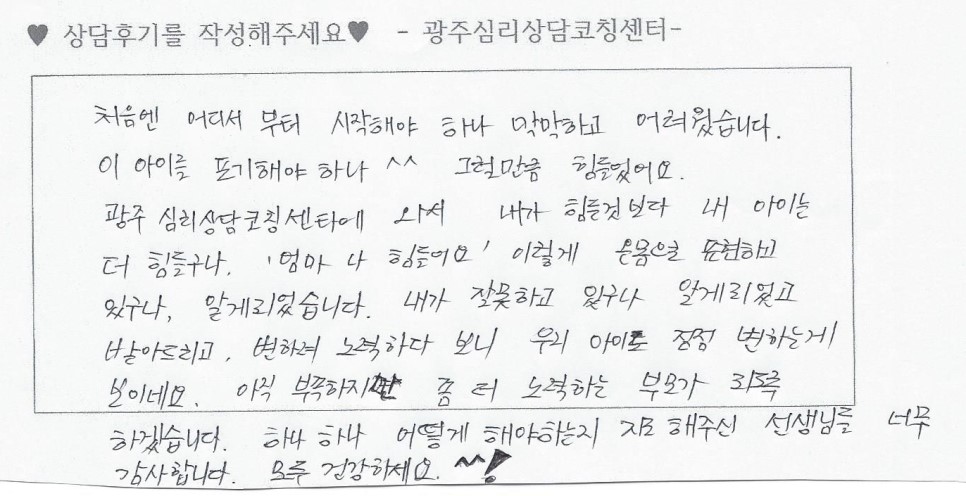 ♥ 상담후기를 작성해주세요♥ - 광주심리상담코칭센터-
처음엔 어디서 부터 시작해야 하나 막막하고 어려웠습니다.
이 아이를 포기해야 하나 ^^ 그럴만큼 힘들었어요.
광주 심리상담코칭센타에 와서 내가 힘들것보다 내 아이는
더 힘들구나. '엄마 나 힘들어요' 이렇게 온몸으로 표현하고
있구나, 알게되었습니다. 내가 잘못하고 있구나 알게되었고
받아드리고, 변하려 노력하다 보니 우리 아이도 점점 변하는게
보이네요. 아직 부족하지만 좀 더 노력하는 부모가 되도록
하겠습니다. 하나 하나 어떻게 해야하는지 지도 해주신 선생님들 너무
감사합니다. 모두 건강하세요. ^^!